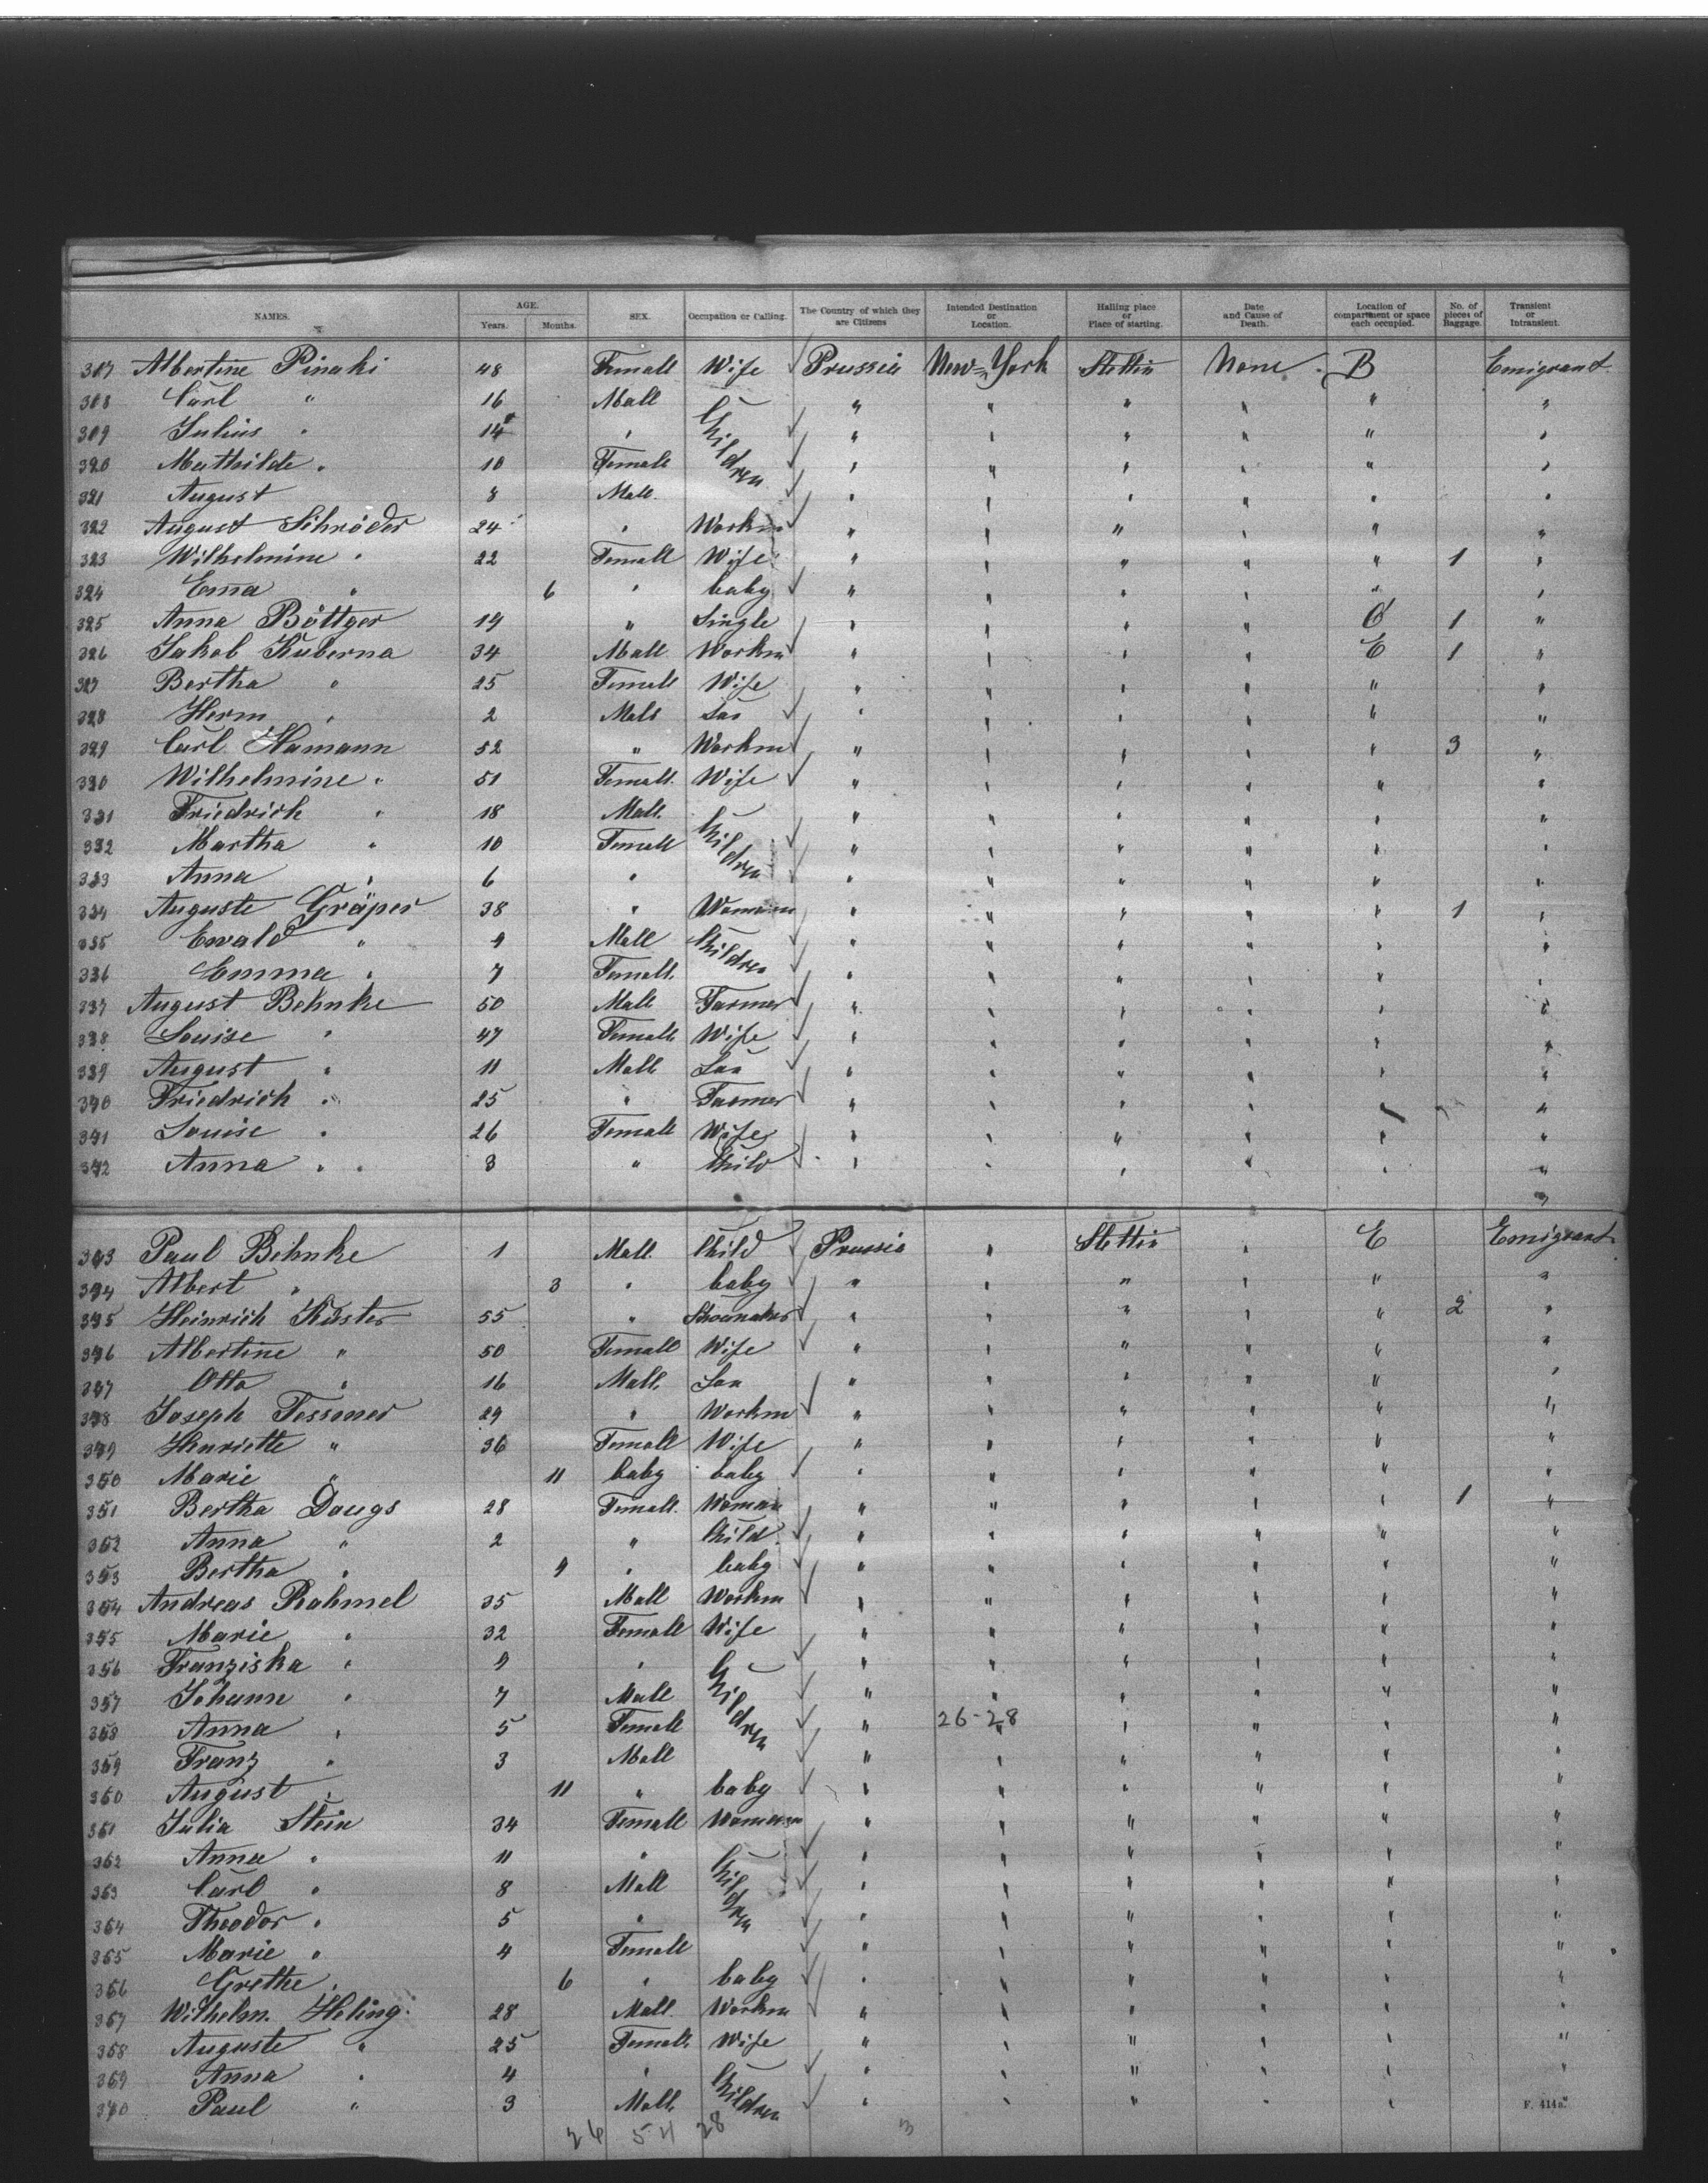 NAMES. AGE. Years. Months. SEX. Occupation or Calling. The Country of which they are Citizens Intended Destination or Location. Halling place or Place of starting. Date and Cause of Death. Location of compartment or space each occupied. No. of pieces of Baggage. Transient or Intransient.
317 Albertine Pinaki 48 Female Wife Prussia New-York Stettin None B Emigrant
318 Carl " 16 Male Children " " " " " "
319 Julius " 14 " " " " " " "
320 Mathilde " 10 Female " " " " " "
321 August 8 Male " " " " " "
322 August Schröder 24 " Workm " " " " " "
323 Wilhelmine " 22 Female Wife " " " " " 1 "
324 Ema " 6 " baby " " " " " "
325 Anna Böttger 19 " Single " " " " C 1 "
326 Jakob Kuberna 34 Male Workm " " " " E 1 "
327 Bertha " 25 Female Wife " " " " " "
328 Herm " 2 Male Son " " " " " "
329 Carl Hamann 52 " Workm " " " " " 3 "
330 Wilhelmine " 51 Female Wife " " " " " "
331 Friedrich " 18 Male Children " " " " " "
332 Martha " 10 Female " " " " " "
333 Anna " 6 " " " " " " "
334 Auguste Gräper 38 " Womann " " " " " 1 "
335 Ewald " 9 Male Children " " " " " "
336 Emma " 7 Female " " " " " "
337 August Behnke 50 Male Farmer " " " " " "
338 Louise " 47 Female Wife " " " " " "
339 August " 11 Male Son " " " " " "
340 Friedrich " 25 " Farmer " " " " " "
341 Louise " 26 Female Wife " " " " " "
342 Anna " " 3 " Child " " " " " "
"
343 Paul Behnke 1 Male Child Prussia " Stettin " E Emigrant
344 Albert " 3 " baby " " " " " "
345 Heinrich Küster 55 " Shoemaker " " " " " 2 "
346 Albertine " 50 Female Wife " " " " " "
347 Otto " 16 Male Son " " " " " "
348 Joseph Tessmer 29 " Workm " " " " " "
349 Henriette " 36 Female Wife " " " " " "
350 Marie " 11 baby baby " " " " " "
351 Bertha Daugs 28 Female Woman " " " " " 1 "
352 Anna " 2 " Child " " " " " "
353 Bertha " 9 " baby " " " " " "
354 Andreas Rahmel 35 Male Workm " " " " " "
355 Marie " 32 Female Wife " " " " " "
356 Franziska " 9 " Children " " " " " "
357 Johann " 7 Male " " " " " "
358 Anna " 5 Female " 26-28 " " " " "
359 Franz " 3 Male " " " " " "
360 August " 11 " baby " " " " " "
361 Julia Stein 34 Female Womann " " " " " "
362 Anna " 11 " Children " " " " " "
363 Carl " 8 Male " " " " " "
364 Theodor " 5 " " " " " " "
365 Marie " 4 Female " " " " " "
366 Grethe " 6 " baby " " " " " "
367 Wilhelm. Heling 28 Male Workm " " " " " "
368 Auguste " 25 Female Wife " " " " " "
369 Anna " 4 " Children " " " " " "
370 Paul " 3 Male " " " " " "
F. 414a.
26 54 28 3